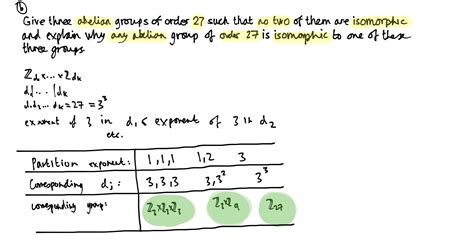 b
Give three abelian groups of order 27 such that no two of them are isomorphic
and explain why any abelian group of order 27 is isomorphic to one of these
three groups.
ℤd₁ x... x ℤdₖ
d₁|...|dₖ
d₁d₂... dₖ = 27 = 3³
exponent of 3 in d₁ ≤ exponent of 3 in d₂
etc.
Partition exponent: 1,1,1 1,2 3
Corresponding dⱼ: 3,3,3 3,3² 3³
corresponding group: ℤ₃xℤ₃xℤ₃ ℤ₃xℤ₉ ℤ₂₇